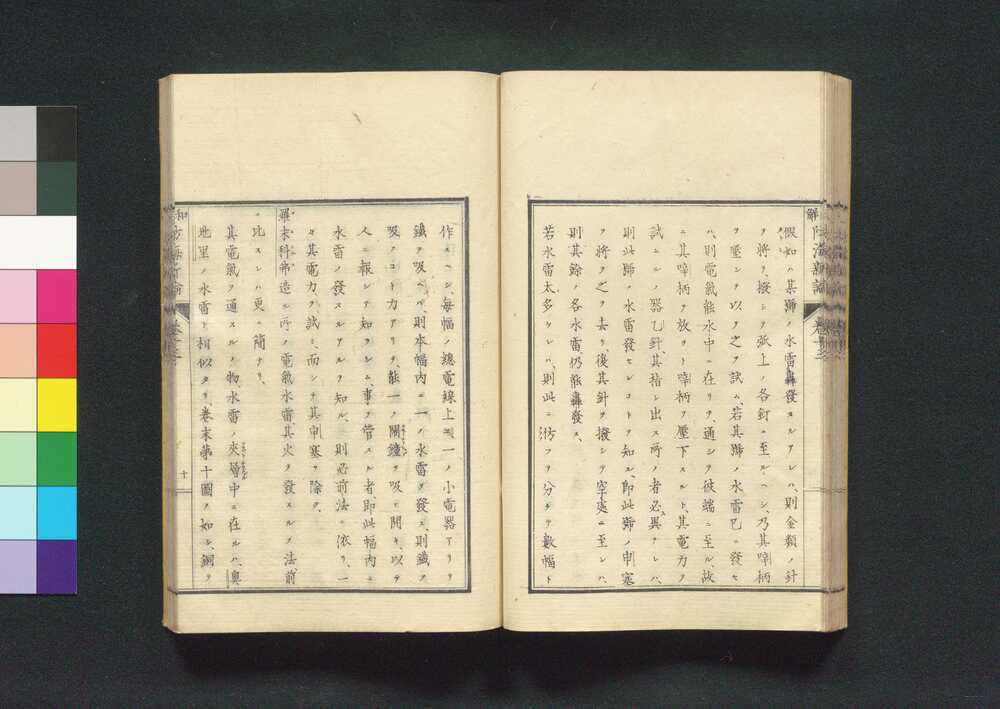 假如ハ某號ノ水雷轟發スルヿアレハ、則金類ノ針
ヲ將ヲ、撥シヲ弧上ノ各釘ニ至ルヘシ、乃其啐柄
ヲ壓シヲ以ヲ之ヲ試ム、若其號ノ水雷已ニ發セ
ハ、則電氣能水中ニ在リヲ、通シヲ彼端ニ至ル、故
ニ其啐柄ヲ放ヲト啐柄ヲ壓下スルト、其電力ヲ
試ミルノ器乙針、其指シ出ス所ノ者必異ナレハ、
則此號ノ水雷發セシコトヲ知ル、即此號ノ申塞
ヲ將ヲ之ヲ去リ、後其針ヲ撥シヲ空處ニ至シハ、
則其餘ノ各水雷、仍能轟發ス、
若水雷太多ケレハ、則此ニ仿フヲ分チヲ數幅ト
作スヘシ、毎幅ノ總電線上ニ、一ノ小電器アリヲ
鐵ヲ吸ヘハ、則本幅内ニ一ノ水雷ヲ發ス、則鐵ヲ
吸フコト力アリヲ、能一ノ閙鐘ヲ吸ヒ開キ、以ヲ
人ニ報シヲ知ラシム、事ヲ管スル者即此幅内ニ
水雷ノ發スルアルヲ知ル、則必前法ニ依リ、一
々其電力ヲ試ミ、而シヲ其申塞ヲ除ク、
羅末科弗造ル所ノ電氣水雷、其火ヲ發スルノ法、前
ニ比スレハ更ニ簡ナリ、
其電氣ヲ通スルノ物、水雷ノ夾層中ニ在ルハ、奥
地里ノ水雷ト相似タリ、卷末第十圖ノ如シ、銅ヲ
解 防海新論 卷之三
和 防海新論 卷之三
十